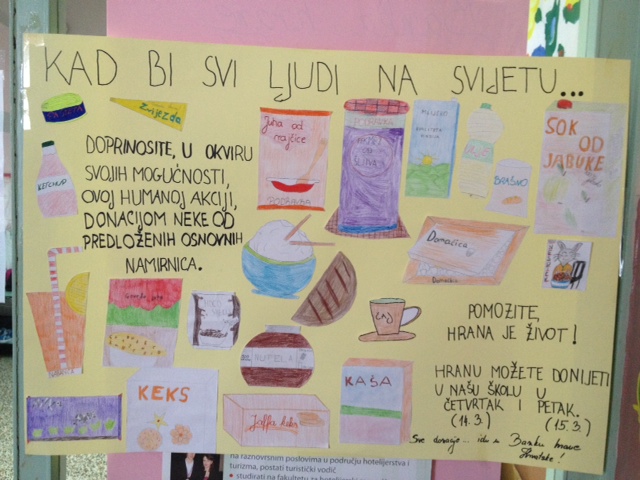 KAD BI SVI LJUDI NA SVIJETU...
Zvijezda
DOPRINOSITE, U OKVIRU
SVOJIH MOGUĆNOSTI,
OVOJ HUMANOJ AKCIJI,
DONACIJOM NEKE OD
PREDLOŽENIH OSNOVNIH
NAMIRNICA.
KETCHUP
Juha od
rajčice
PODRAVKA
BRAŠNO
SOK
OD
JABUKE
Domaćica
Domaćica
ČAJ
NUTELA
KEKS
Jaffa keks
KAŠA
POMOZITE,
HRANA JE ŽIVOT!
HRANU MOŽETE DONIJETI
U NAŠU ŠKOLU U
ČETVRTAK I PETAK.
(14.3) (15.3)
Sve donacije... idu u Banku hrane
Hrvatske!
na raznovrsnim poslovima u području hotelijerstva i
turizma, postati turistički vodič
studirati na fakultetu za